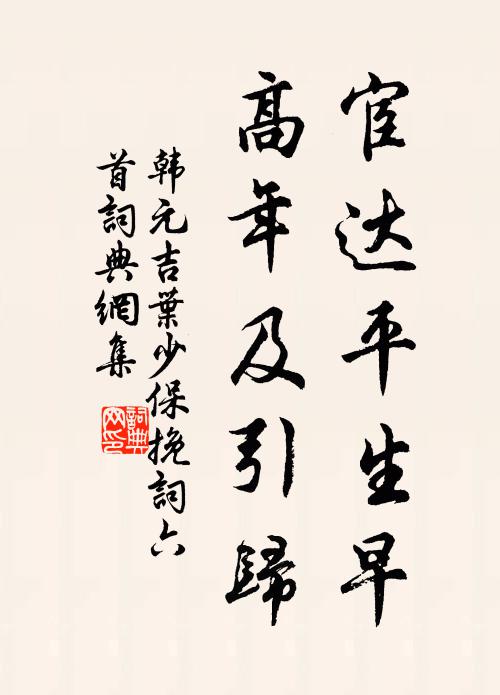 宦达平生早
高年及引歸
韩元吉葉少保挽詞六
首詞典網集
詞典网印